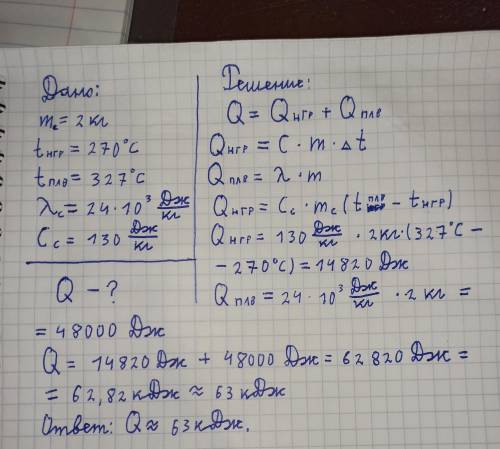 Дано:
mс = 2 кг
tнгр = 270°C
tплв = 327°C
λс = 24·10³ Дж/кг
Cс = 130 Дж/кг
Q - ?
Решение:
Q = Qнгр + Qплв
Qнгр = C · m · Δt
Qплв = λ · m
Qнгр = Cс · mс (tплв - tнгр)
Qнгр = 130 Дж/кг · 2кг·(327°C -
- 270°C) = 14820 Дж
Qплв = 24 · 10³ Дж/кг · 2 кг =
= 48000 Дж
Q = 14820 Дж + 48000 Дж = 62820 Дж =
= 62,82 кДж ≈ 63 кДж
Ответ: Q ≈ 63 кДж.